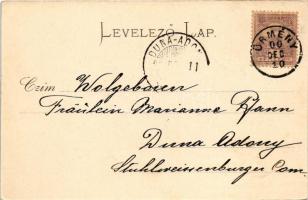 LEVELEZŐ LAP.
DUNA-ADO
11
ÜRMÉNY
00
DEC
10
Czim Wolgeboren
Fräulein Marianne
Duna Adony
Stuhlweissenburger Com.